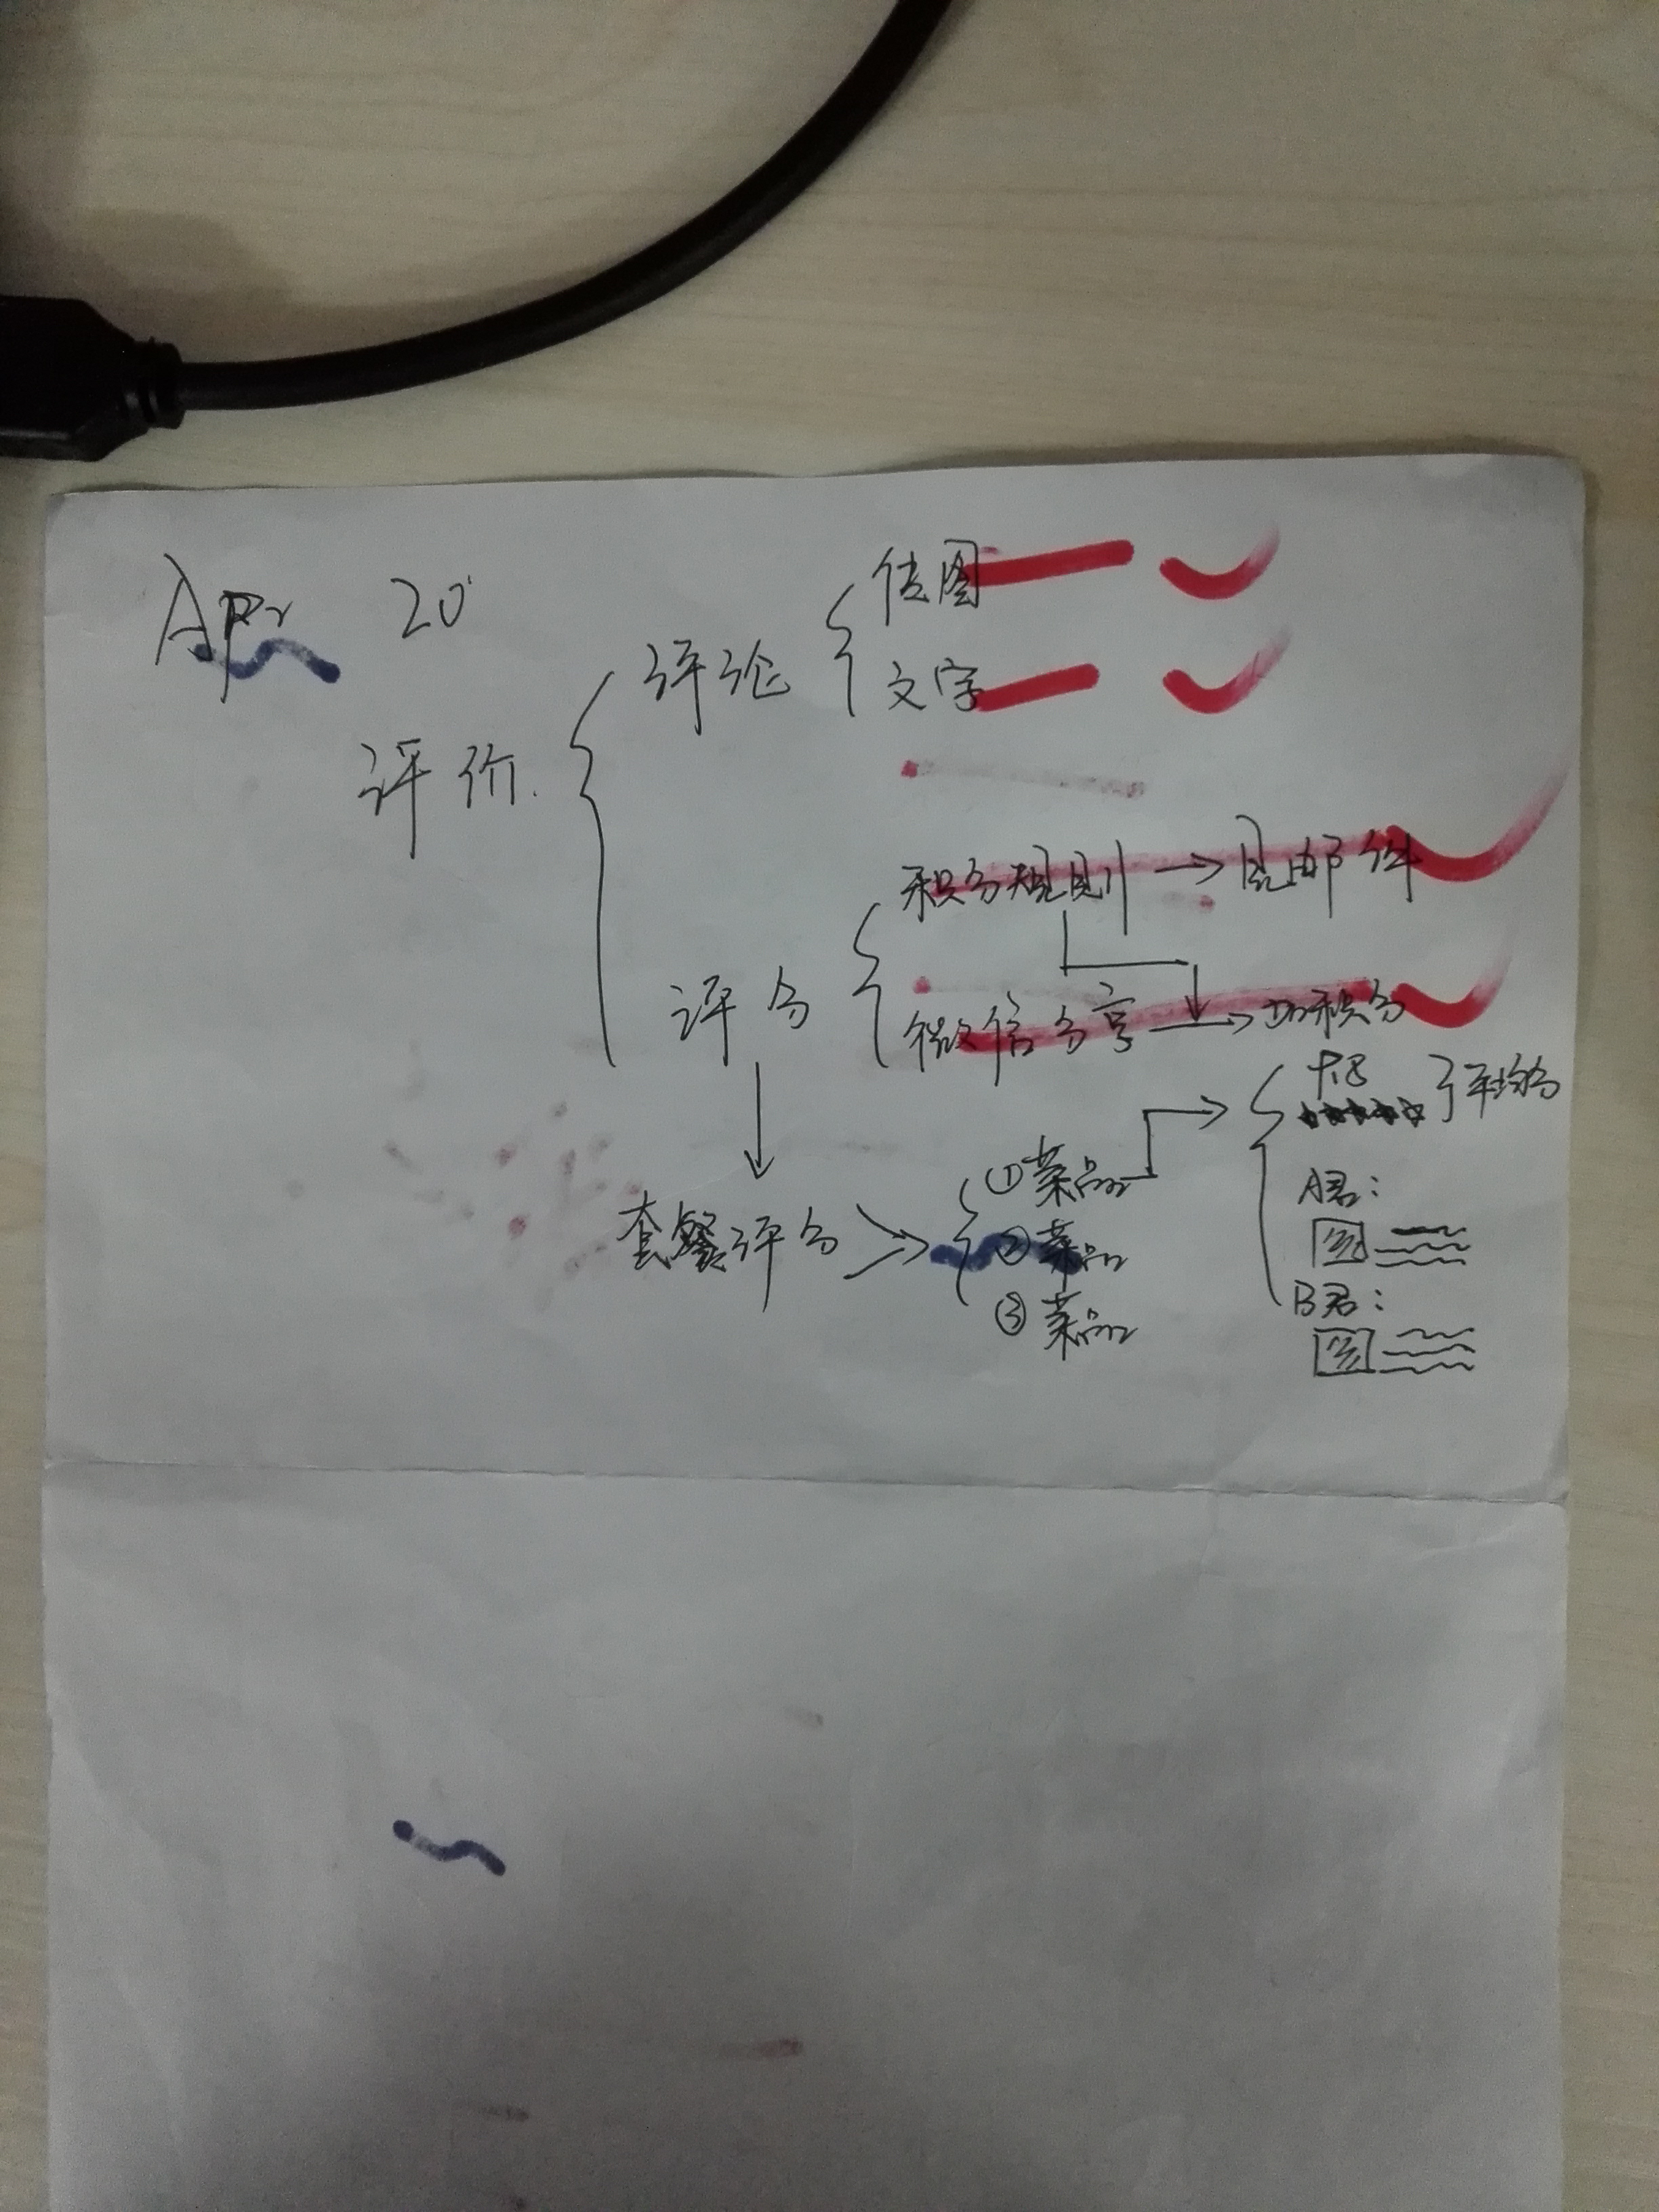 Apr 20
评价.
评论
传图
文字
评分
积分规则 → 见邮件
微信分享 → 加积分
套餐评分
① 菜品
② 菜品
③ 菜品
平均分
A君：
图
B君：
图